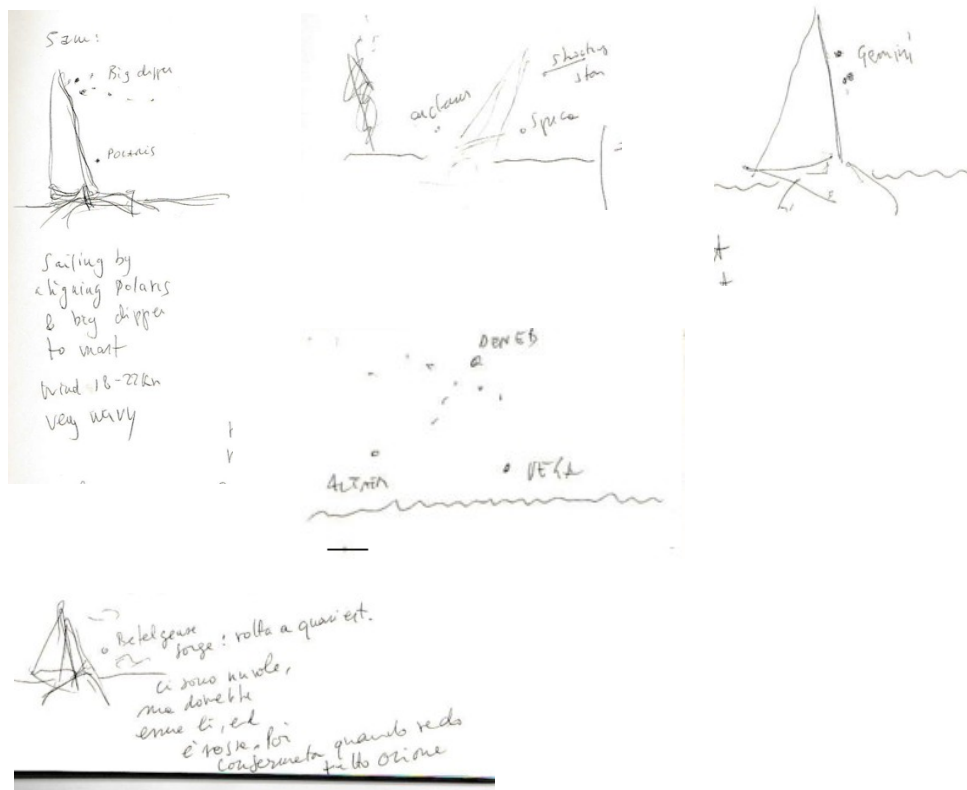 5 am:
Big dipper
Polaris
Sailing by
aligning Polaris
& big dipper
to mast
Wind 18-22Kn
very wavy
shooting
star
Spica
Gemini
DENEB
ALTAIR
VEGA
Betelgeuse
sorge: rotta a quasi est.
ci sono nuvole,
ma dovrebbe
essere li, ed
è rossa. Poi
confermata quando vedo
tutto Orione